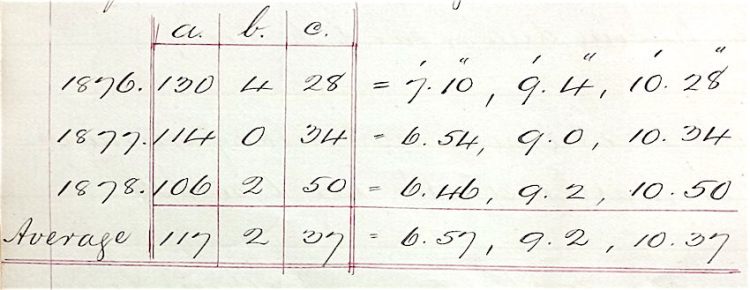 a. b. c.
1876. 130 4 28 = 7.′10″, 9.′4″, 10.′28″
1877. 114 0 34 = 6.54, 9.0, 10.34
1878. 106 2 50 = 6.46, 9.2, 10.50
Average 117 2 37 = 6.57, 9.2, 10.37